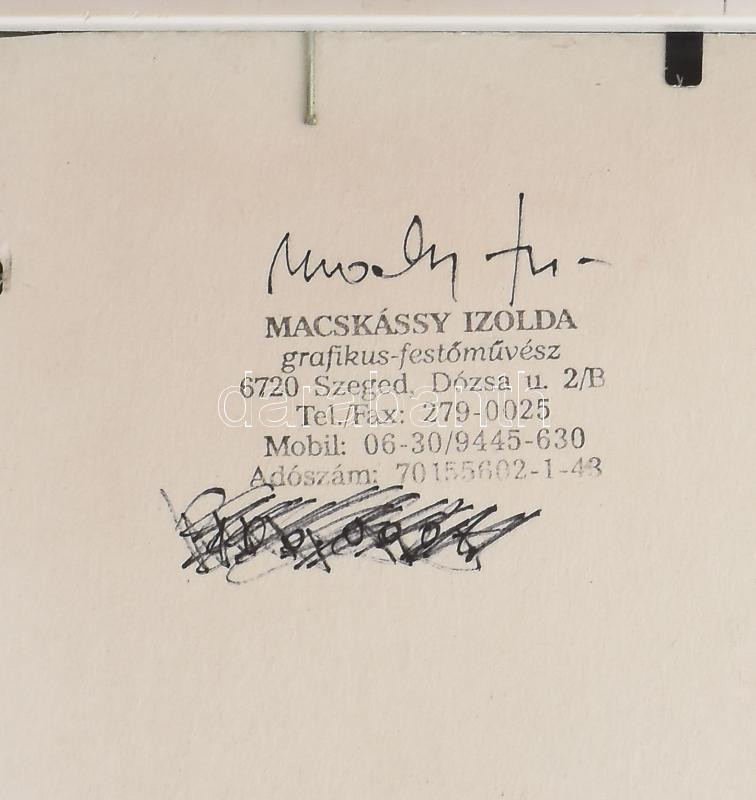 MACSKÁSSY IZOLDA
grafikus-festőművész
6720 Szeged, Dózsa u. 2/B
darabanth
Tel./Fax: 279-0025
Mobil: 06-30/9445-630
Adószám: 70155602-1-43